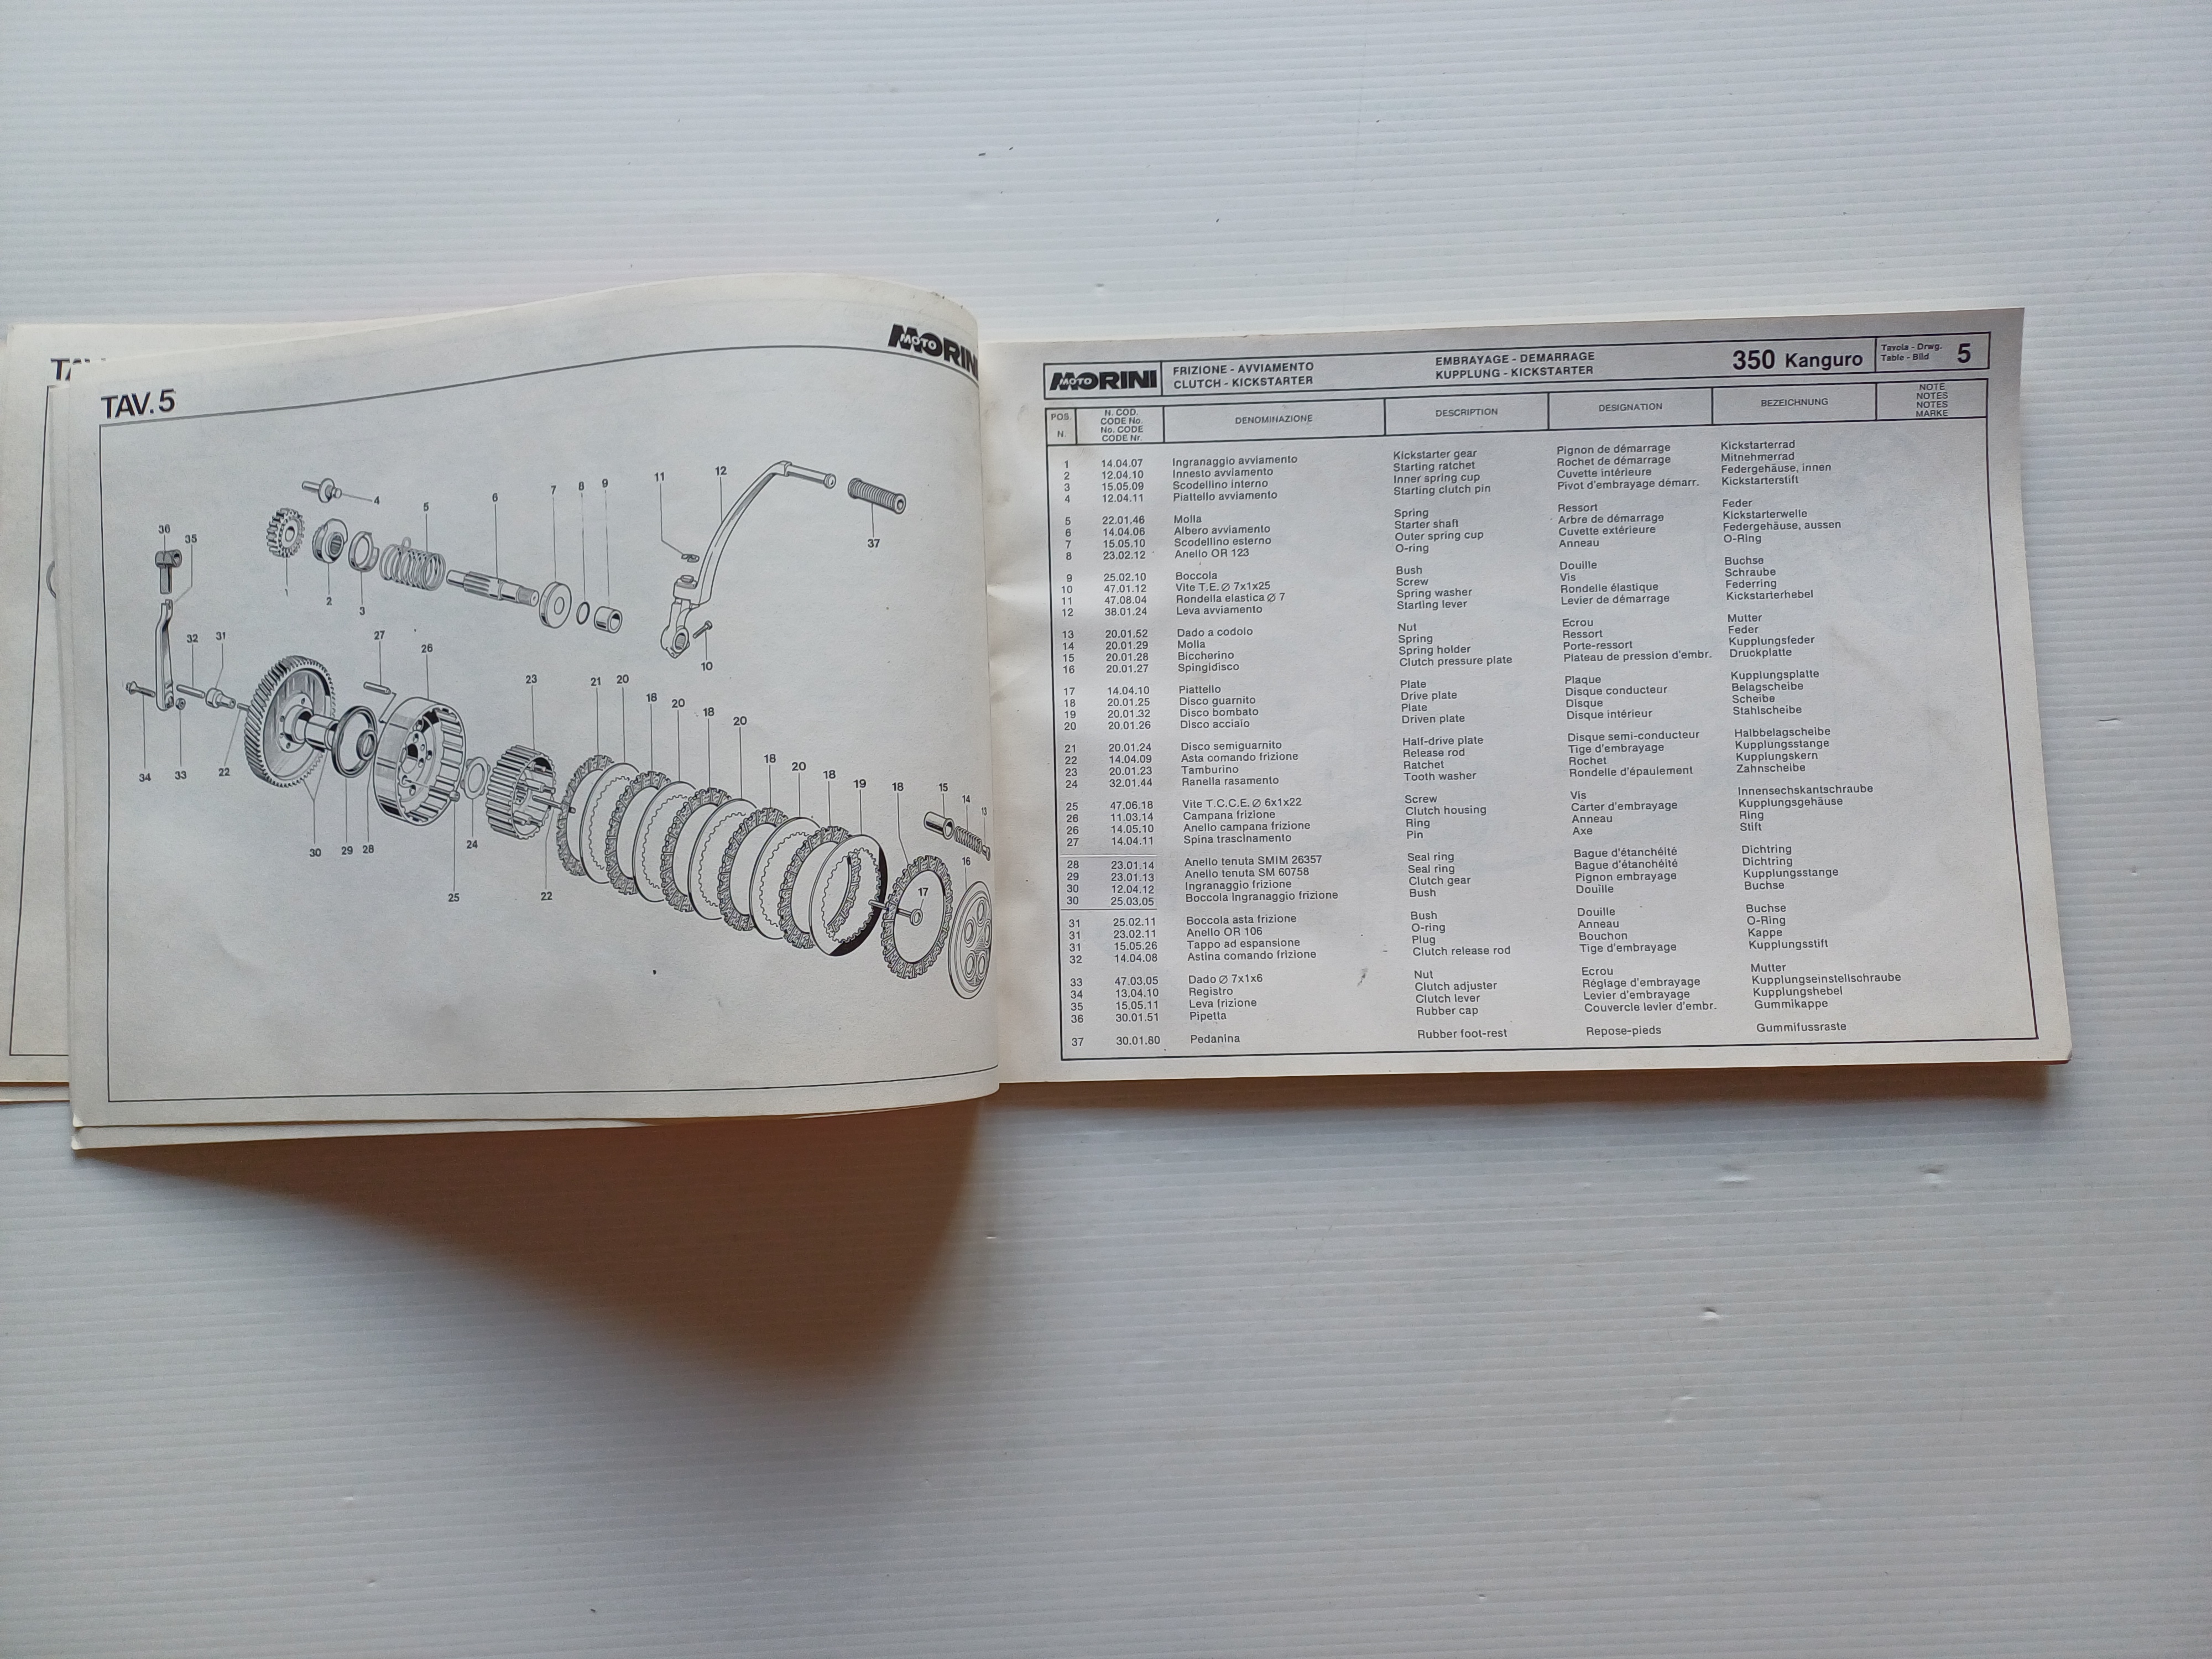 TAV.5
MOTO MORINI
4
12
11
5
6
7
8
9
36
35
37
1
2
3
10
32
31
27
26
23
21
20
18
20
18
20
18
20
18
19
18
15
14
13
16
17
34
33
22
30
29
28
25
24
22
MOTO MORINI
FRIZIONE - AVVIAMENTO
CLUTCH - KICKSTARTER
EMBRAYAGE - DEMARRAGE
KUPPLUNG - KICKSTARTER
350 Kanguro
Tavola - Drwg.
Table - Bild
5
POS.
N.
N. COD.
CODE No.
No. CODE
CODE Nr.
DENOMINAZIONE
DESCRIPTION
DESIGNATION
BEZEICHNUNG
NOTE
NOTES
NOTES
MARKE
1 14.04.07 Ingranaggio avviamento Kickstarter gear Pignon de démarrage Kickstarterrad
2 12.04.10 Innesto avviamento Starting ratchet Rochet de démarrage Mitnehmerrad
3 15.05.09 Scodellino interno Inner spring cup Cuvette intérieure Federgehäuse, innen
4 12.04.11 Piattello avviamento Starting clutch pin Pivot d'embrayage démarr. Kickstarterstift
5 22.01.46 Molla Spring Ressort Feder
6 14.04.06 Albero avviamento Starter shaft Arbre de démarrage Kickstarterwelle
7 15.05.10 Scodellino esterno Outer spring cup Cuvette extérieure Federgehäuse, aussen
8 23.02.12 Anello OR 123 O-ring Anneau O-Ring
9 25.02.10 Boccola Bush Douille Buchse
10 47.01.12 Vite T.E. Ø 7x1x25 Screw Vis Schraube
11 47.08.04 Rondella elastica Ø 7 Spring washer Rondelle élastique Federring
12 38.01.24 Leva avviamento Starting lever Levier de démarrage Kickstarterhebel
13 20.01.52 Dado a codolo Nut Ecrou Mutter
14 20.01.29 Molla Spring Ressort Feder
15 20.01.28 Biccherino Spring holder Porte-ressort Kupplungsfeder
16 20.01.27 Spingidisco Clutch pressure plate Plateau de pression d'embr. Druckplatte
17 14.04.10 Piattello Plate Plaque Kupplungsplatte
18 20.01.25 Disco guarnito Drive plate Disque conducteur Belagscheibe
19 20.01.32 Disco bombato Plate Disque Scheibe
20 20.01.26 Disco acciaio Driven plate Disque intérieur Stahlscheibe
21 20.01.24 Disco semiguarnito Half-drive plate Disque semi-conducteur Halbbelagscheibe
22 14.04.09 Asta comando frizione Release rod Tige d'embrayage Kupplungsstange
23 20.01.23 Tamburino Ratchet Rochet Kupplungskern
24 32.01.44 Ranella rasamento Tooth washer Rondelle d'épaulement Zahnscheibe
25 47.06.18 Vite T.C.C.E. Ø 6x1x22 Screw Vis Innensechskantschraube
26 11.03.14 Campana frizione Clutch housing Carter d'embrayage Kupplungsgehäuse
26 14.05.10 Anello campana frizione Ring Anneau Ring
27 14.04.11 Spina trascinamento Pin Axe Stift
28 23.01.14 Anello tenuta SMIM 26357 Seal ring Bague d'étanchéité Dichtring
29 23.01.13 Anello tenuta SM 60758 Seal ring Bague d'étanchéité Dichtring
30 12.04.12 Ingranaggio frizione Clutch gear Pignon embrayage Kupplungsstange
30 25.03.05 Boccola ingranaggio frizione Bush Douille Buchse
31 25.02.11 Boccola asta frizione Bush Douille Buchse
31 23.02.11 Anello OR 106 O-ring Anneau O-Ring
31 15.05.26 Tappo ad espansione Plug Bouchon Kappe
32 14.04.08 Astina comando frizione Clutch release rod Tige d'embrayage Kupplungsstift
33 47.03.05 Dado Ø 7x1x6 Nut Ecrou Mutter
34 13.04.10 Registro Clutch adjuster Réglage d'embrayage Kupplungseinstellschraube
35 15.05.11 Leva frizione Clutch lever Levier d'embrayage Kupplungshebel
36 30.01.51 Pipetta Rubber cap Couvercle levier d'embr. Gummikappe
37 30.01.80 Pedanina Rubber foot-rest Repose-pieds Gummifussraste